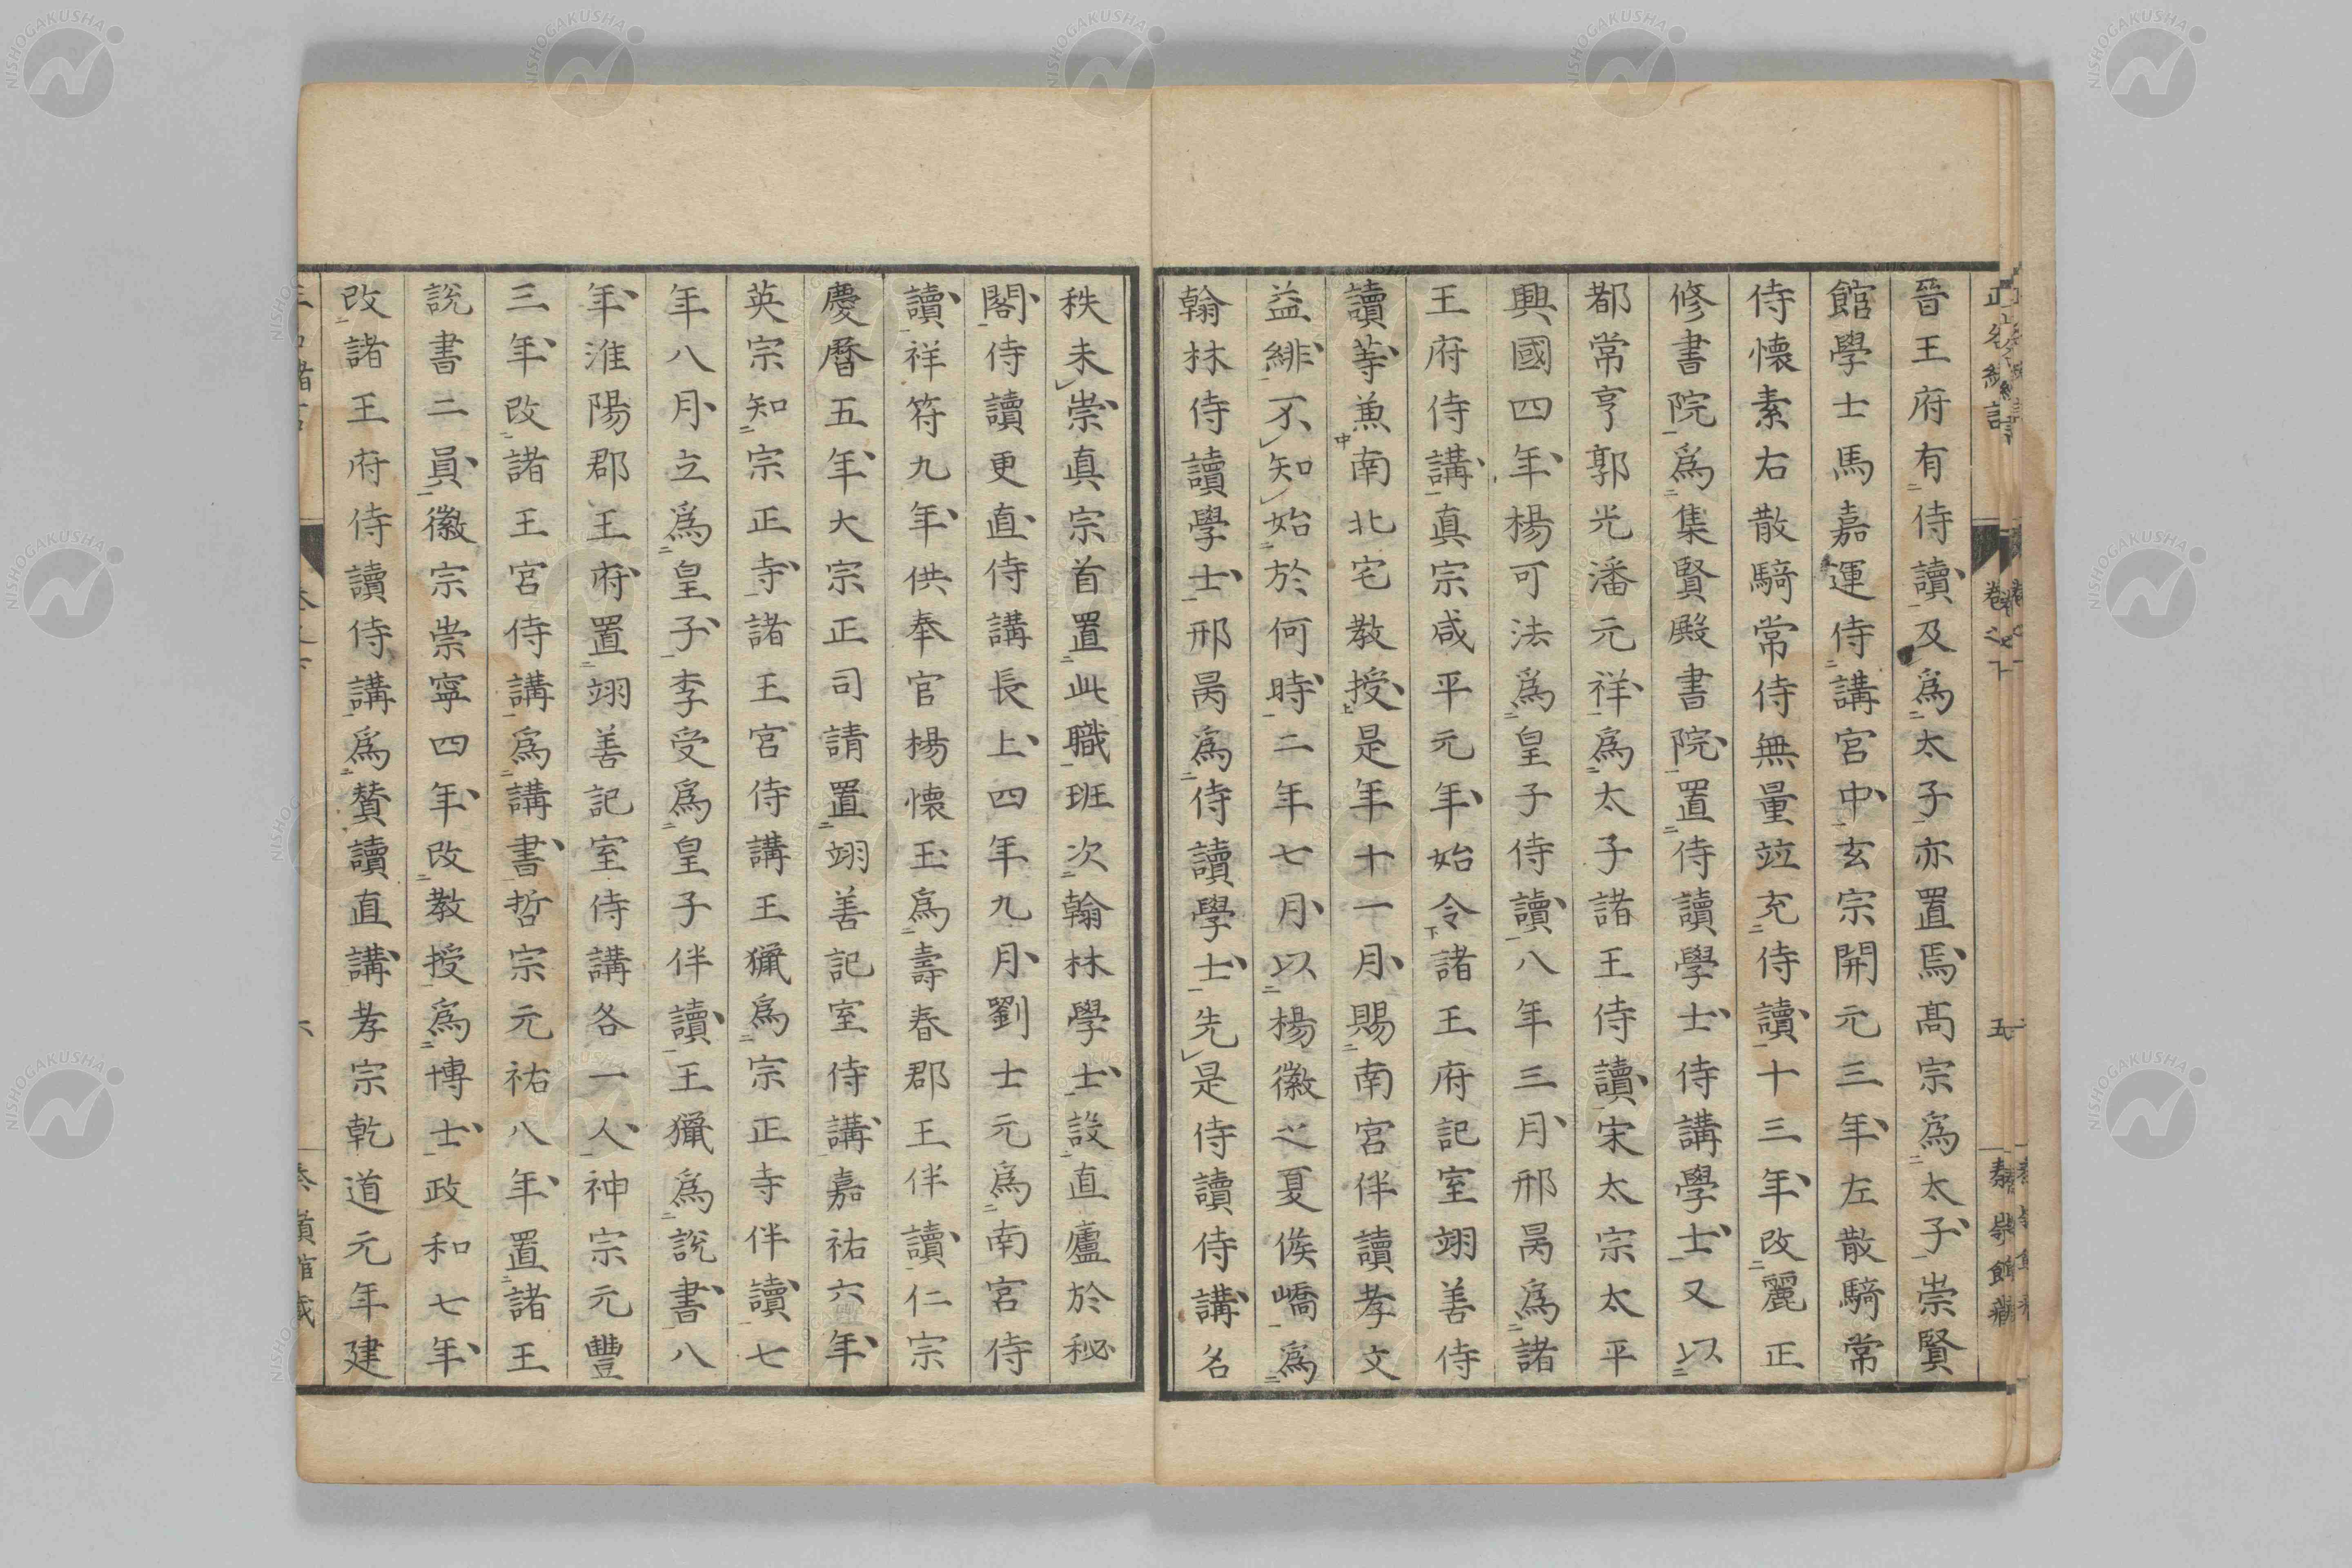 晉王府有侍讀及爲太子亦置焉高宗爲太子崇賢
館學士馬嘉運侍講宮中玄宗開元三年左散騎常
侍懷素右散騎常侍無量竝充侍讀十三年改麗正
修書院爲集賢殿書院置侍讀學士侍講學士又以
都常亨郭光潘元祥爲太子諸王侍讀宋太宗太平
興國四年楊可法爲皇子侍讀八年三月邢昺爲諸
王府侍講眞宗咸平元年始令諸王府記室翊善侍
讀等兼南北宅敎授是年十一月賜南宮伴讀孝文
益緋不知始於何時二年七月以楊徽之夏侯嶠爲
翰林侍讀學士邢昺爲侍讀學士先是侍讀侍講名
秩未崇眞宗首置此職班次翰林學士設直廬於秘
閣侍讀更直侍講長上四年九月劉士元爲南宮侍
讀祥符九年供奉官楊懷玉爲壽春郡王伴讀仁宗
慶曆五年大宗正司請置翊善記室侍講嘉祐六年
英宗知宗正寺諸王宮侍講王獵爲宗正寺伴讀七
年八月立爲皇子李受爲皇子伴讀王獵爲說書八
年淮陽郡王府置翊善記室侍講各一人神宗元豐
三年改諸王宮侍講爲講書哲宗元祐八年置諸王
說書二員徽宗崇寧四年改敎授爲博士政和七年
改諸王府侍讀侍講爲贊讀直講孝宗乾道元年建
卷之下
五
NISHOGAKUSHA